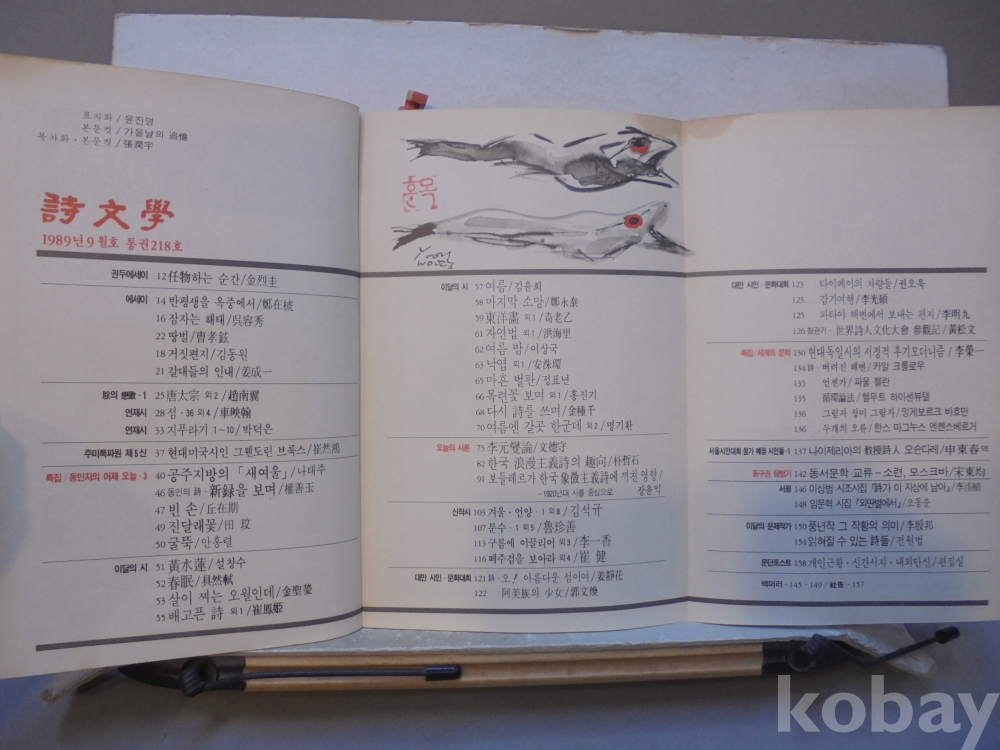 표지화/윤진영
본문컷/가을날의 追憶
목차화·본문컷/張潤宇
詩文學
1989년 9월호 통권218호
권두에세이 12 任物하는 순간/金烈圭
에세이 14 반평생을 옥중에서/鄭在棫
16 잠자는 해태/吳容秀
22 땅벌/曺孝鉉
18 거짓편지/김동원
21 갈대들의 인내/姜成一
朕의 戀歌·1 25 唐太宗 외2/趙南翼
연재시 28 섬·36 외4/車映翰
연재시 33 지푸라기 1~10/박덕은
주미특파원 제5신 37 현대미국시인 그웬도린 브룩스/崔然鴻
특집/동인지의 어제 오늘·3 40 공주지방의 「새여울」/나태주
46 동인의 詩·新録을 보며/權善玉
47 빈 손/丘在期
49 진달래꽃/田 玟
50 굴뚝/안홍렬
이달의 시 51 黃水蓮/설창수
52 春眠/具然軾
53 살이 찌는 오월인데/金聖
55 배고픈 詩 외1/崔鳳姬
이달의 시 57 여름/김윤희
58 마지막 소망/鄭永泰
59 東洋畵 외1/奇老乙
61 자연법 외1/洪海里
62 여름 밤/이상국
63 낙엽 외1/安洙環
65 마흔 벌판/정표년
66 목련꽃 보며 외1/홍진기
68 다시 詩를 쓰며/金種千
70 여름엔 갈곳 한군데 외2/명기환
오늘의 시론 73 李元燮論/文德守
82 한국 浪漫主義詩의 趣向/朴哲石
91 보들레르가 한국 象徵主義詩에 끼친 영향/
-1920년대 시를 중심으로 장윤익
신작시 103 겨울·언양·1 외8/김석규
107 분수·1 외5/魯珍善
113 구름에 이끌리어 외3/李一香
116 메주검을 보아라 외4/崔 健
대만 시인·문화대회 121 詩·오! 아름다운 섬이여/姜靜花
122 阿美族의 少女/郭文煥
대만 시인·문화대회 123 타이페이의 차량들/권오욱
123 감기여행/李光碩
125 파타야 해변에서 보내는 편지/李明九
126 참관기·世界詩人文化大會 參觀記/黃松文
특집/세계의 문학 130 현대독일시의 서정적 후기모더니즘/李榮一
134 詩·버려진 해변/카알 크롤로우
135 언젠가/파울 첼란
135 循環論法/헬무트 하이센뷰텔
136 그림자 장미 그림자/잉게보르크 바흐만
136 두개의 오류/한스 마그누스 엔젠스베르거
서울시인대회 참가 예정 시인들·1 137 나이제리아의 敎授詩人 오순다레/申東春 역
동구권 탐방기 142 동서문학 교류-소련, 모스크바/宋東均
서평 146 이상범 시조시집 「詩가 이 지상에 남아」/李
148 임문혁 시집 「외딴별에서」/오동춘
이달의 문제작가 150 풍년작 그 작황의 의미/李殷邦
154 읽혀질 수 있는 詩들/전원범
문단포스트 158 개인근황·신간서지·내외단신/편집실
백미러·145·149/社告·157
kobay